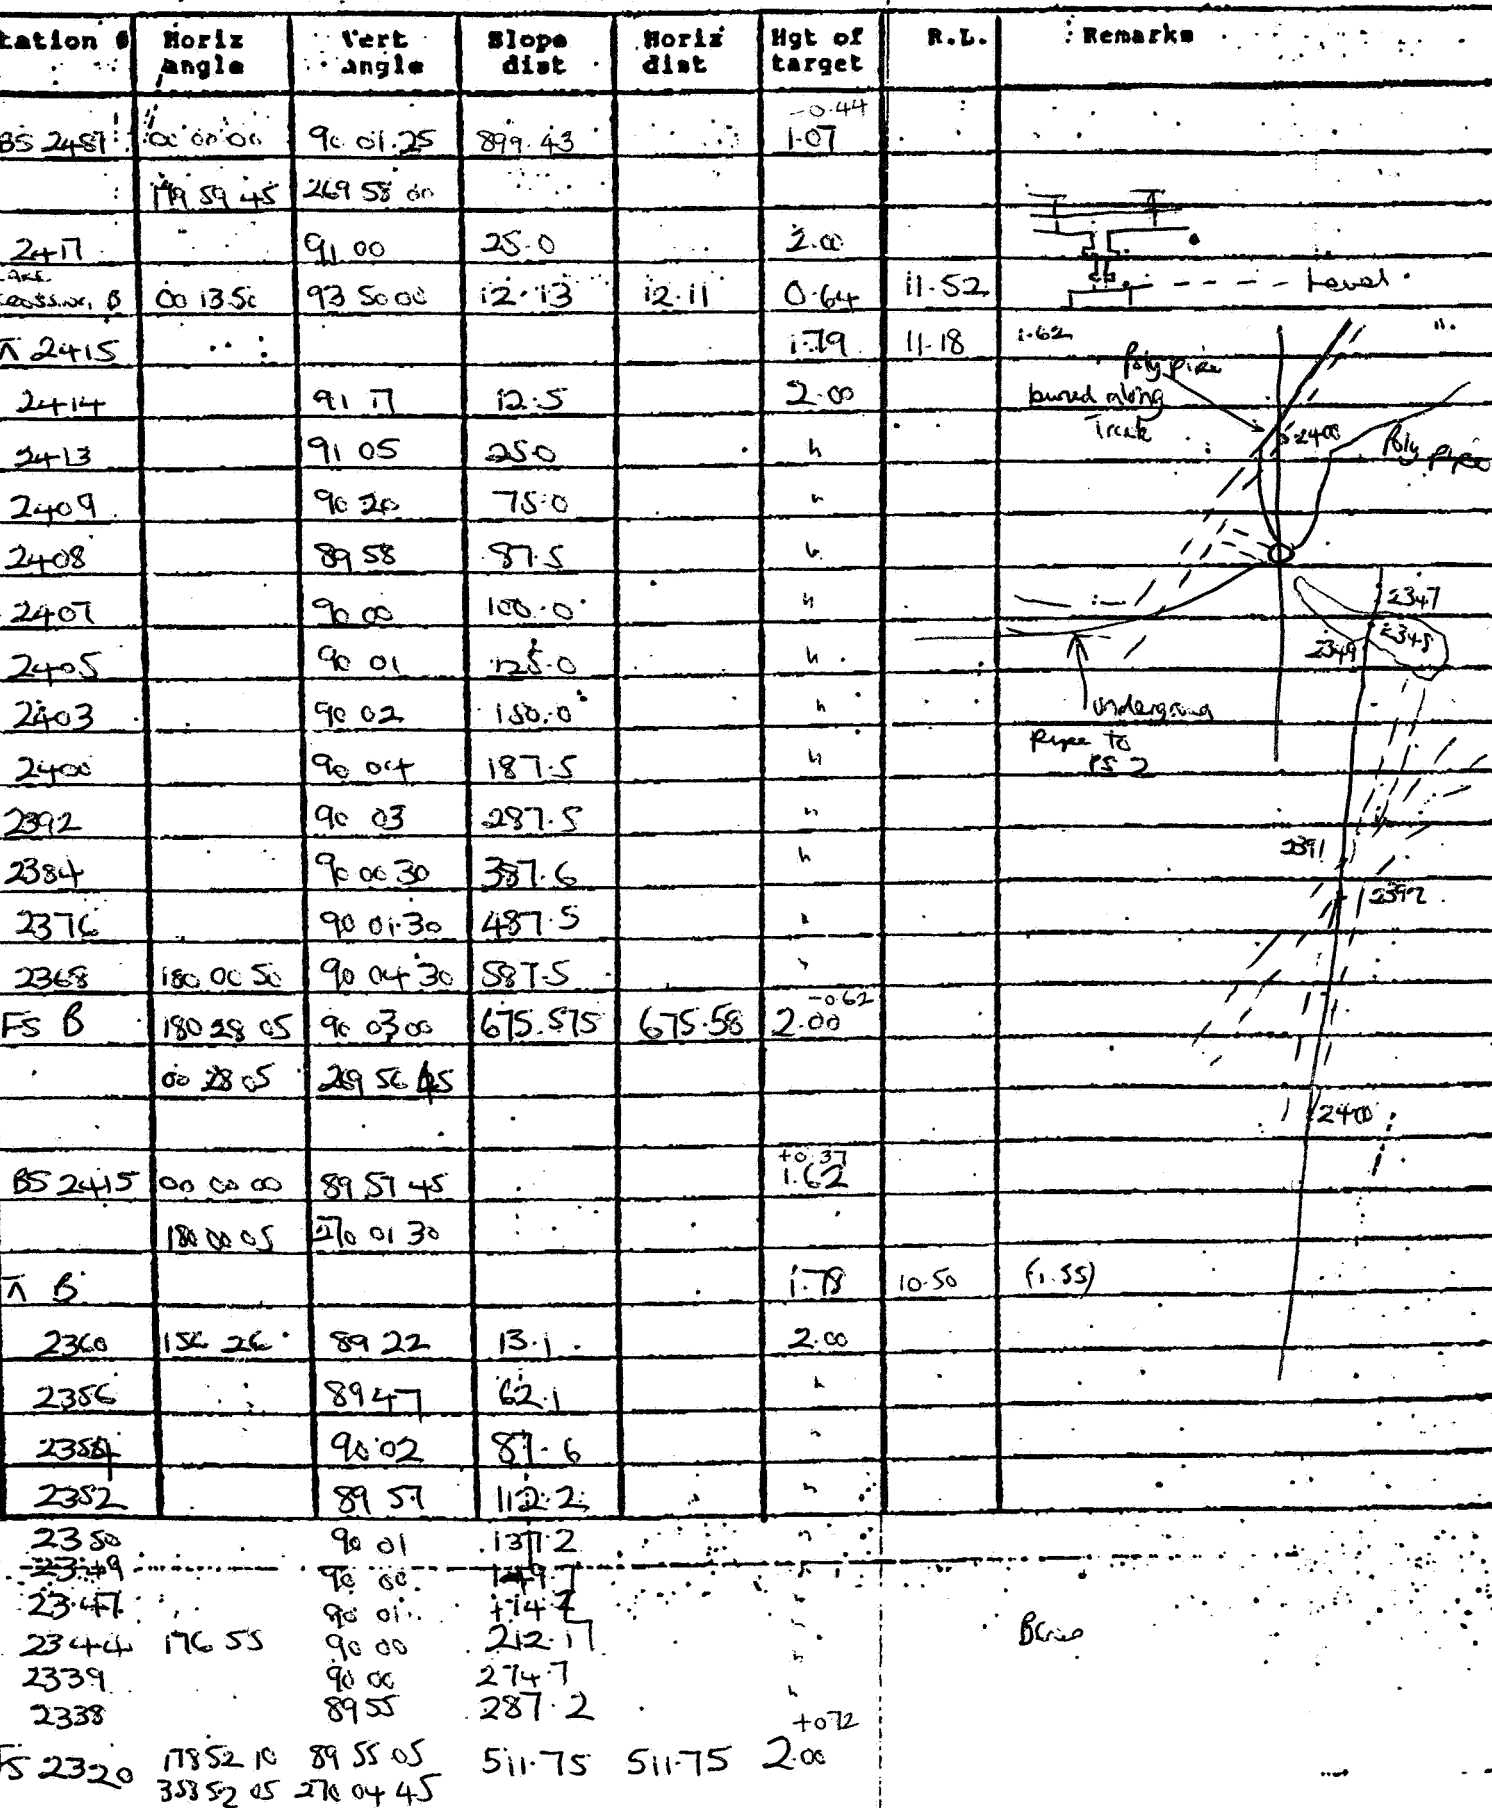 tation # Horiz angle Vert angle Slope dist Horiz dist Hgt of target R.L. Remarks
-0.44
BS 2487 00 00 00 90 01.25 899.43 1.07
179 59 45 269 58 00
2417 91 00 25.0 2.00
B 00 13 50 93 50 00 12.13 12.11 0.64 11.52 Level
⊼ 2415 1.79 11.18 1.62
2414 91 17 12.5 2.00
Poly pipe buried along Track
2413 91 05 25.0 " 2400 Poly pipe
2409 90 20 75.0 "
2408 89 58 87.5 "
2407 90 00 100.0 " 2347
2405 90 01 125.0 " 2349 2348
2403 90 02 150.0 "
Underground Pipe to PS 2
2400 90 04 187.5 "
2392 90 03 287.5 "
2384 90 00 30 387.6 " 2391
2376 90 01.30 487.5 " 2392
2368 180 00 50 90 04 30 587.5 "
-0.62
FS B 180 28 05 90 03 00 675.575 675.58 2.00
00 28 05 269 56 45
2400
+0.37
BS 2415 00 00 00 89 57 45 1.62
180 00 05 270 01 30
⊼ B 1.78 10.50 (1.55)
2360 156 26 89 22 13.1 2.00
2356 89 47 62.1 "
2354 90 02 87.6 "
2352 89 57 112.2 "
2350 90 01 137.2 "
2349 90 00 149.7 "
2347 90 01 174.2 "
2344 176 55 90 00 212.17 "
2339 90 00 274.7 "
2338 89 55 287.2
+0.72
FS 2320 178 52 10 89 55 05 511.75 511.75 2.00
358 52 05 270 04 45